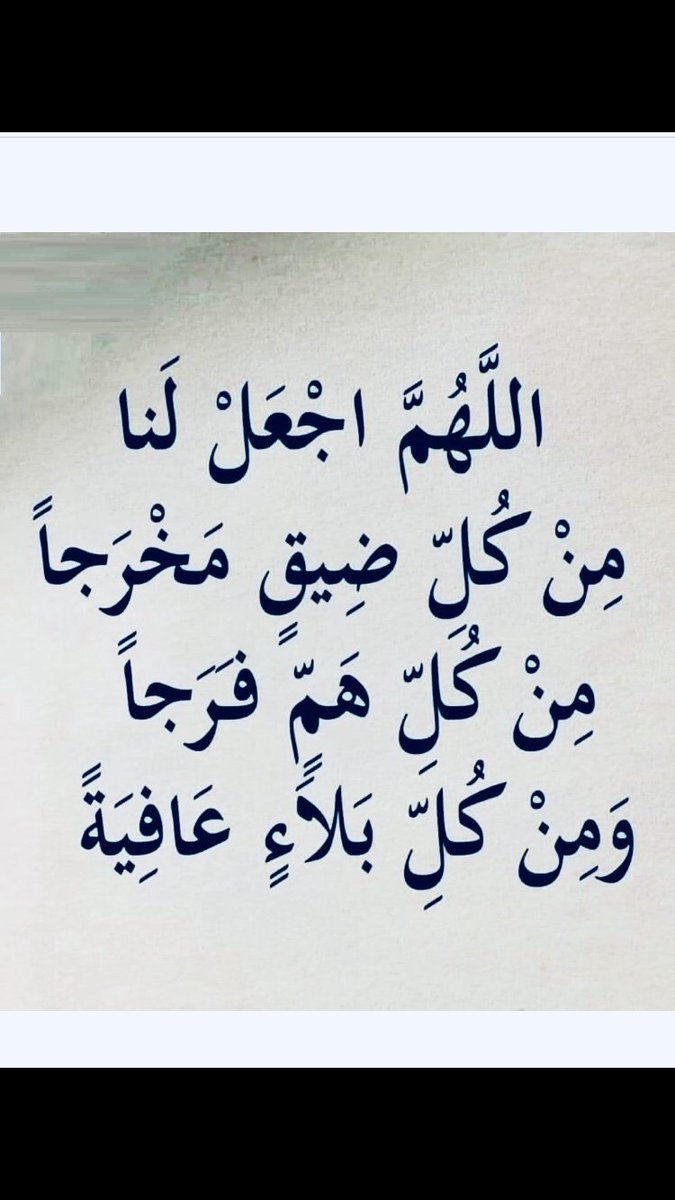 اللَّهُمَّ اجْعَلْ لَنا
مِنْ كُلِّ ضِيقٍ مَخْرَجاً
مِنْ كُلِّ هَمٍّ فَرَجاً
وَمِنْ كُلِّ بَلاَءٍ عَافِيَةً